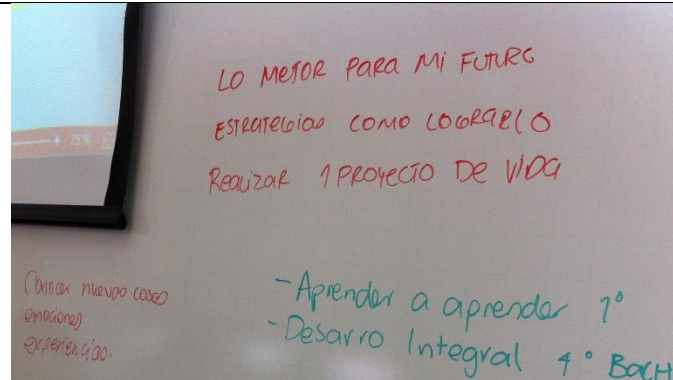 75%
LO MEJOR PARA MI FUTURO
ESTRATEGIAS COMO LOGRARLO
REALIZAR 1 PROYECTO DE VIDA
Conocer nuevas cosas
emociones
experiencias.
-Aprender a aprender 1°
-Desarro Integral 4° BACH